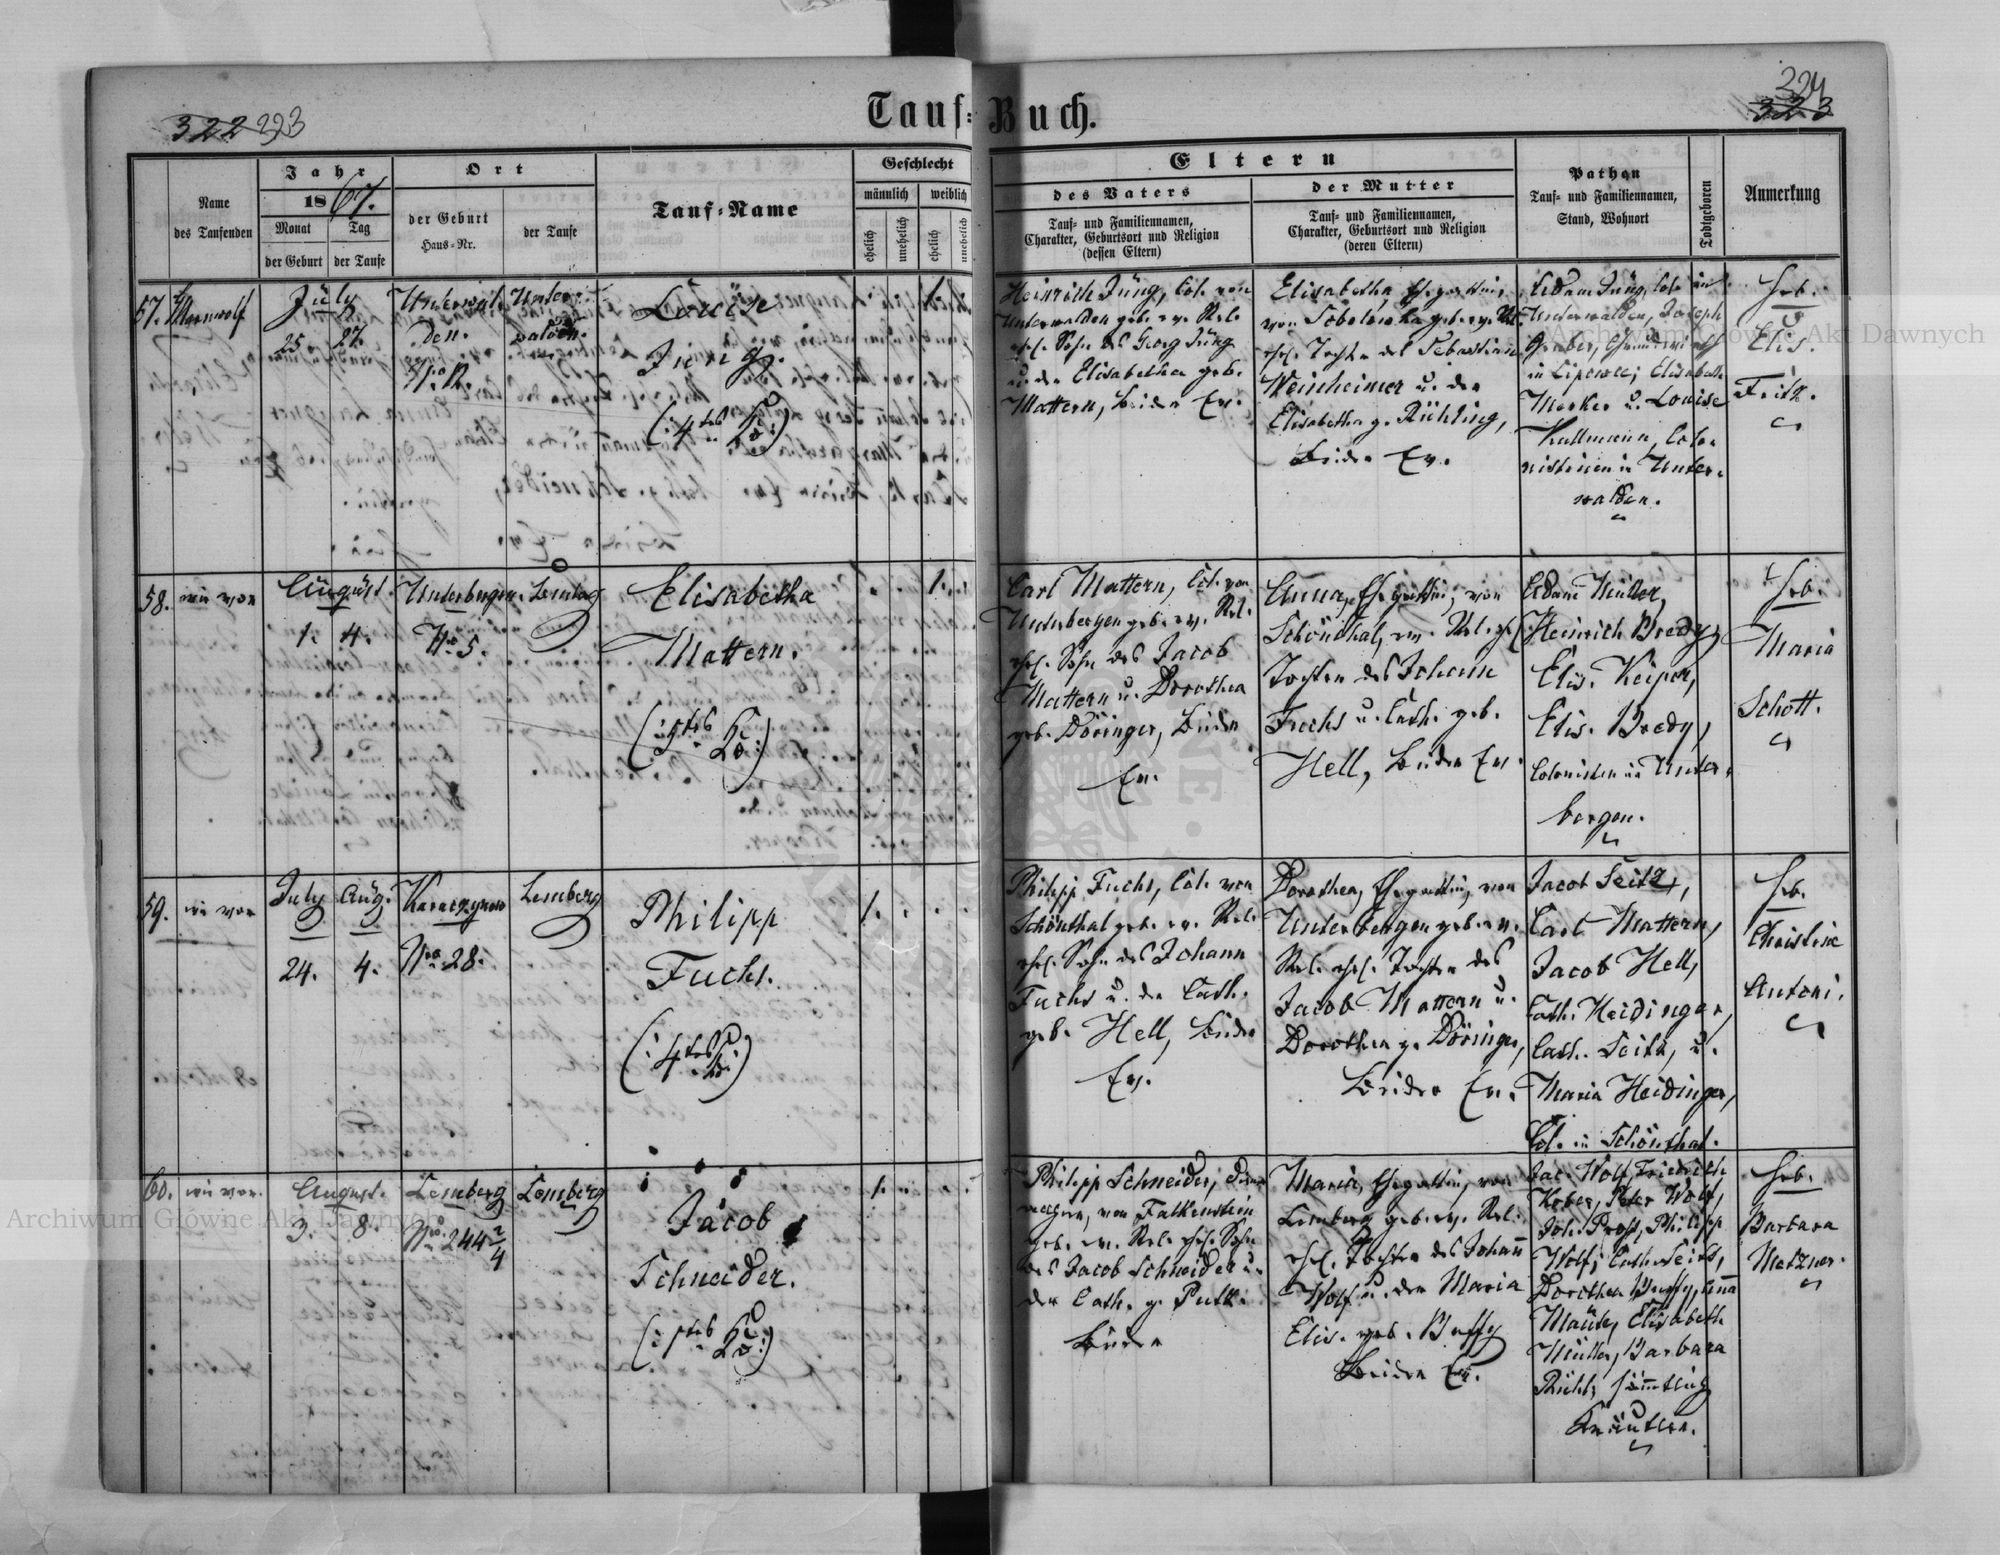 322 293
Tauf-Buch.
324
323
Name
des Taufenden
Jahr
1867.
Monat
Tag
der Geburt
der Taufe
Ort
der Geburt
Haus-Nr.
der Taufe
Tauf-Name
Geschlecht
männlich
weiblich
ehelich
unehelich
ehelich
unehelich
Eltern
des Vaters
Tauf- und Familiennamen,
Charakter, Geburtsort und Religion
(dessen Eltern)
der Mutter
Tauf- und Familiennamen,
Charakter, Geburtsort und Religion
(deren Eltern)
Pathen
Tauf- und Familiennamen,
Stand, Wohnort
Todtgeboren
Anmerkung
57.
July
25. 27.
Unterwal-
den.
Unter-
walden.
Louise
Jung.
(: 4tes K. :)
1.
Heinrich Jung, Col. von
Unterwalden geb. ev. Rel.
ehel. Sohn des Georg Jung
u. der Elisabetha geb.
Mattern, beide Ev.
Elisabetha Ehegattin,
von Sobolowka geb. ev. Rel.
ehel. Tochter des Sebastian
Weinheimer u. der
Elisabetha g. Rühling,
beide Ev.
Adam Jung, Col. in
Unterwalden, Joseph
Gruber, Grundwirth
in Lipowce, Elisabeth
Merker u. Louise
Kullmann, Colo-
nistinen in Unter-
walden.
Heb.
Elis.
Fritz.
58. wie vor
August
1. 4.
Unterbergen
No. 5.
Lemberg
Elisabetha
Mattern.
(: 5tes K. :)
1.
Carl Mattern, Col. von
Unterbergen geb. ev. Rel.
ehel. Sohn des Jacob
Mattern u. Dorothea
geb. Döringer, beide
Ev.
Anna, Ehegattin, von
Schönthal, ev. Rel. ehel.
Tochter des Johann
Fuchs u. Cath. geb.
Hell, beide Ev.
Adam Müller,
Heinrich Bredy,
Elis. Keiper,
Elis. Bredy,
Colonisten in Unter-
bergen.
Heb.
Maria
Schott.
59. wie vor
July Aug.
24. 4.
Karaczynow
No. 28.
Lemberg
Philipp
Fuchs.
(: 4tes K. :)
1.
Philipp Fuchs, Col. von
Schönthal geb. ev. Rel.
ehel. Sohn des Johann
Fuchs u. der Cath.
geb. Hell, beide
Ev.
Dorothea, Ehegattin, von
Unterbergen geb. ev.
Rel. ehel. Tochter des
Jacob Mattern u.
Dorothea g. Döringer,
beide Ev.
Jacob Seitz,
Carl Mattern,
Jacob Hell,
Cath. Heidinger,
Cath. Seitz, u.
Maria Heidinger,
Col. in Schönthal.
Heb.
Christine
Antoni.
60. wie vor.
August.
3. 8.
Lemberg
No. 244 2/4
Lemberg
Jacob
Schneider.
(: 1tes K. :)
1.
Philipp Schneider,
von Falkenstein
geb. ev. Rel. ehel. Sohn
des Jacob Schneider u.
der Cath. g. Putk.
beide
Maria, Ehegattin, von
Lemberg geb. ev. Rel.
ehel. Tochter des Johann
Wolf u. der Maria
Elis. geb. Buffy
beide Ev.
Jac. Wolf, Friedrich
Keber, Peter Wolf,
Joh. Prop, Philipp
Wolf, Cath. Seitz,
Dorothea Buffy, Anna
Mauke, Elisabeth
Müller, Barbara
Rühl, sämmtlich
Heb.
Barbara
Metzner.
Archiwum Główne Akt Dawnych
Archiwum Główne Akt Dawnych